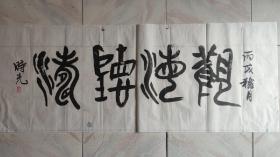 丙戌穐月
觀海聽濤
時光